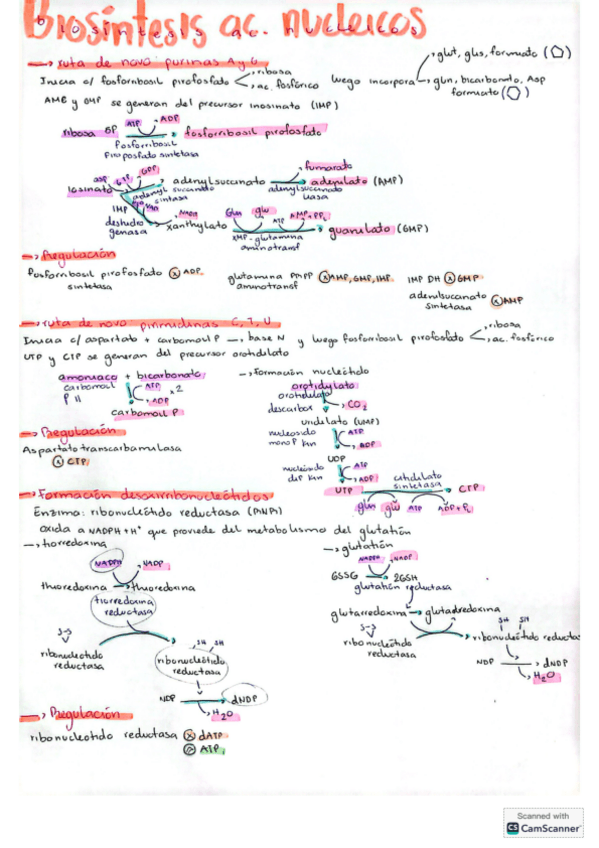 Biosíntesis ac. nucleicos
→ ruta de novo: purinas A y G
Inicia c/ fosforribosil pirofosfato
ribosa
ac. fosfórico
luego incorpora
glut, glis, formiato ( )
gln, bicarbonato, Asp
formiato ( )
AMP y GMP se generan del precursor inosinato (IMP)
ribosa 5P
ATP
ADP
fosforribosil pirofosfato
fosforribosil
Piroposfato sintetasa
inosinato
asp
GTP
GPP
adenyl succino
sintasa
adenylsuccinato
adenylsuccinato
liasa
fumarato
adenilato (AMP)
IMP
deshidro
genasa
xanthylato
Gln
glu
ATP
AMP + PPi
XMP-glutamina
aminotransf
guanilato (GMP)
→ Regulación
Fosforribosil pirofosfato ⊗ ADP
sintetasa
glutamina PRPP ⊗ AMP, GMP, IMP
aminotransf
IMP DH ⊗ GMP
adenilsucanato ⊗ AMP
sintetasa
→ ruta de novo pirimidinas C, T, U
Inicia c/ aspartato + carbamoil P → base N y luego fosforribosil pirofosfato
ribosa
ac. fosfórico
UTP y CTP se generan del precursor orotidilato
amoniaco + bicarbonato
carbamoil
P II
ATP
ADP
x2
carbamoil P
→ formación nucleótido
orotidylato
orotidilato
descarbox
CO2
uridilato (UMP)
nucleosido
monoP kin
ATP
ADP
UDP
nucleosido
diP kin
ATP
ADP
UTP
citidilato
sintetasa
CTP
gln
glu
ATP
ADP+Pi
→ Regulación
Aspartato transcarbamilasa
⊗ CTP
→ Formación desoxirribonucleótidos
Enzima: ribonucleótido reductasa (RNR)
oxida a NADPH + H+ que proviede del metabolismo del glutatión
→ tiorredoxina
NADPH
NADP
thioredoxina → thioredoxina
tiorredoxina
reductasa
S-S
ribonucleótido
reductasa
SH SH
ribonucleótido
reductasa
NDP → dNDP
H2O
→ glutatión
NADPH
NADP
GSSG → 2GSH
glutatión reductasa
glutarredoxina → glutadredoxina
S-S
ribonucleótido
reductasa
SH SH
ribonucleótido reductasa
NDP → dNDP
H2O
→ Regulación
ribonucleotido reductasa ⊗ dATP
ATP
Scanned with
CS CamScanner